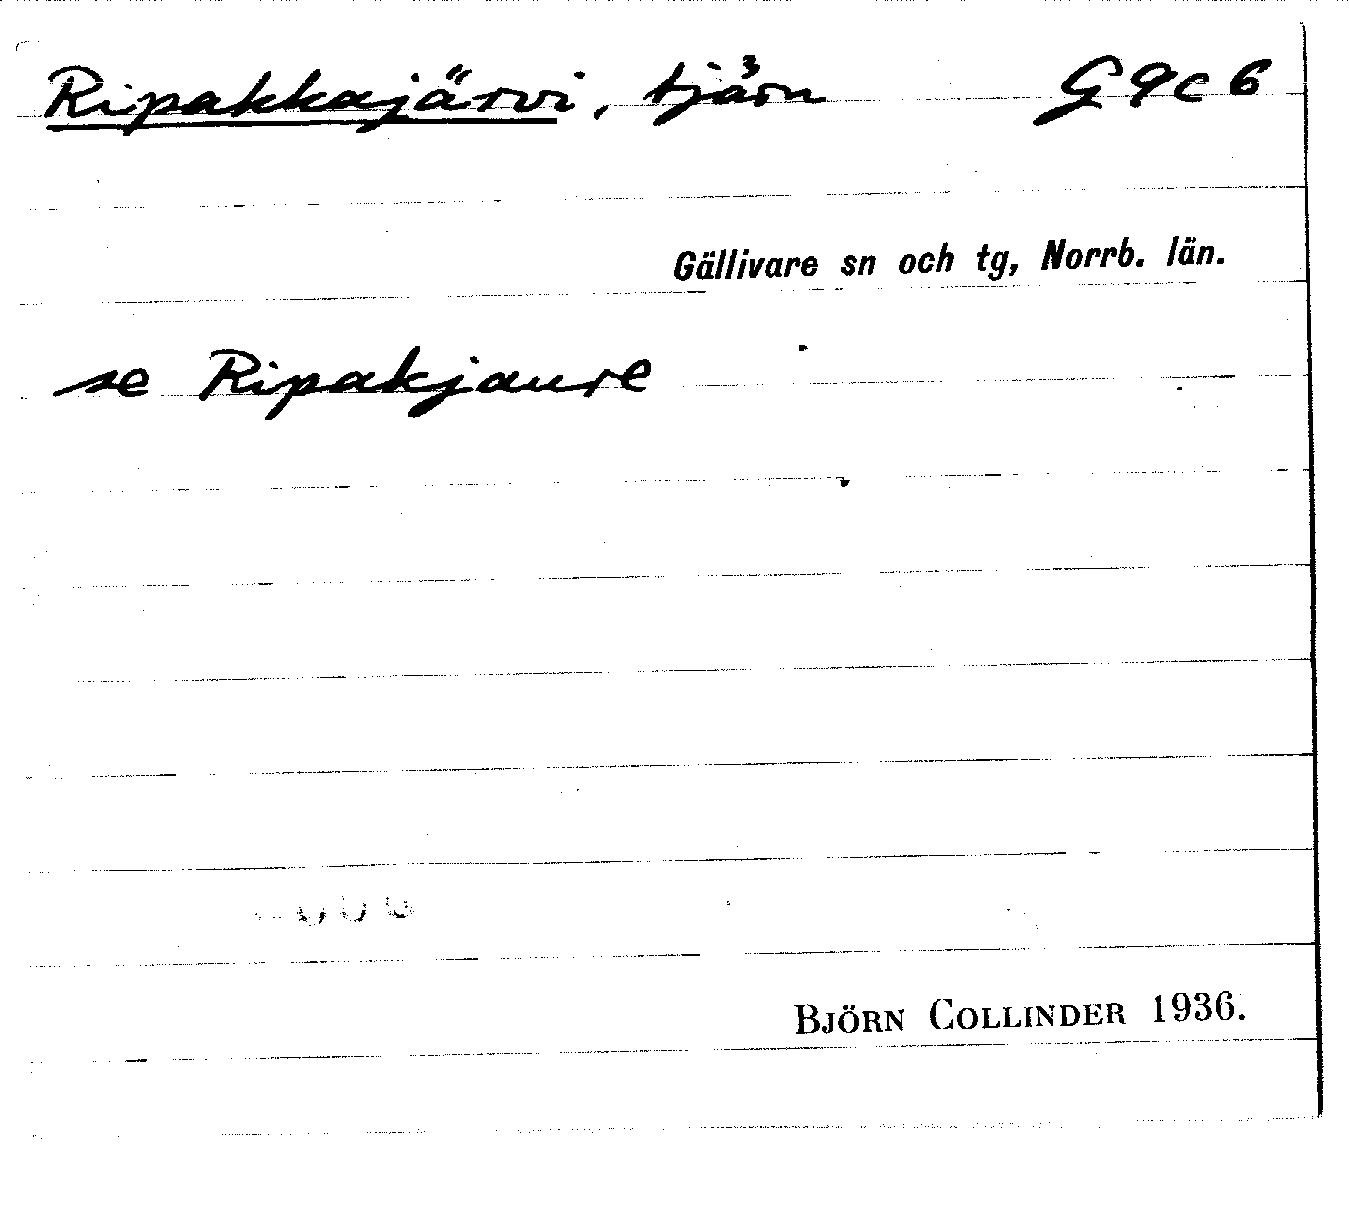 Ripakkajärvi, tjärn G9c6
Gällivare sn och tg, Norrb. län.
se Ripakjaure
BJÖRN COLLINDER 1936.